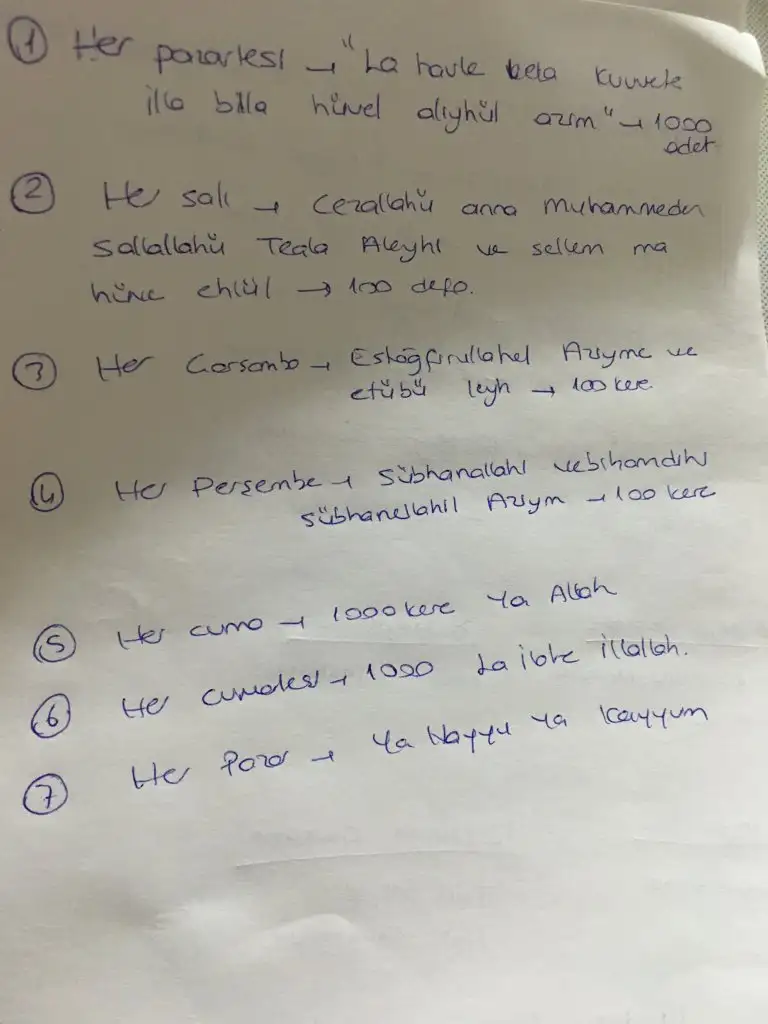 ① Her pazartesi → "La havle vela kuvvete
illa billa hüvel aliyhül azim" → 1000
adet
② Her salı → Cezallahü anna Muhammeden
Sallallahü Teala Aleyhi ve sellem ma
hüve ehlül → 100 defa.
③ Her Çarşamba → Estağfirullahel Azıyme ve
etübü leyh → 100 kere
④ Her Perşembe → Sübhanallahi vebihamdihi
Sübhanellahil Azıym → 100 kere
⑤ Her cuma → 1000 kere Ya Allah
⑥ Her cumatesi → 1000 La ilahe illallah.
⑦ Her Pazar → Ya Hayyu Ya Kayyum